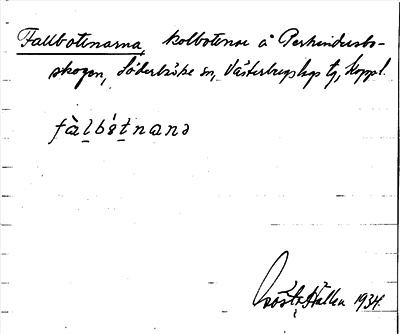 Fallbotnarna, kolbotnar å Perhindersbo-
skogen, Söderbärke sn, Västerbergslags tg, Koppl.
fàlbótnanə
Gösta Hallen 1934.